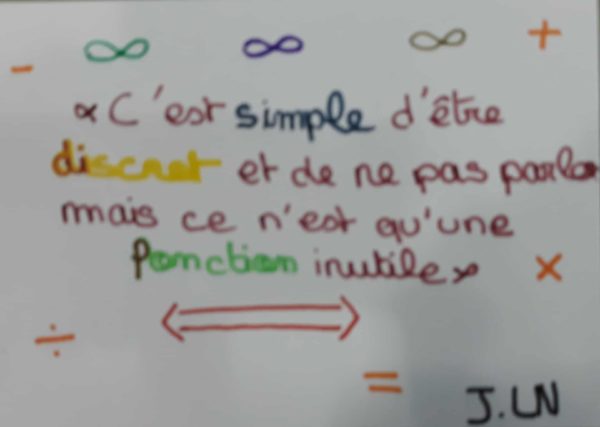 - ∞ ∞ ∞ +
« C'est simple d'être
discret et de ne pas parler
mais ce n'est qu'une
fonction inutile »
×
÷ ⇔
=
J.LN